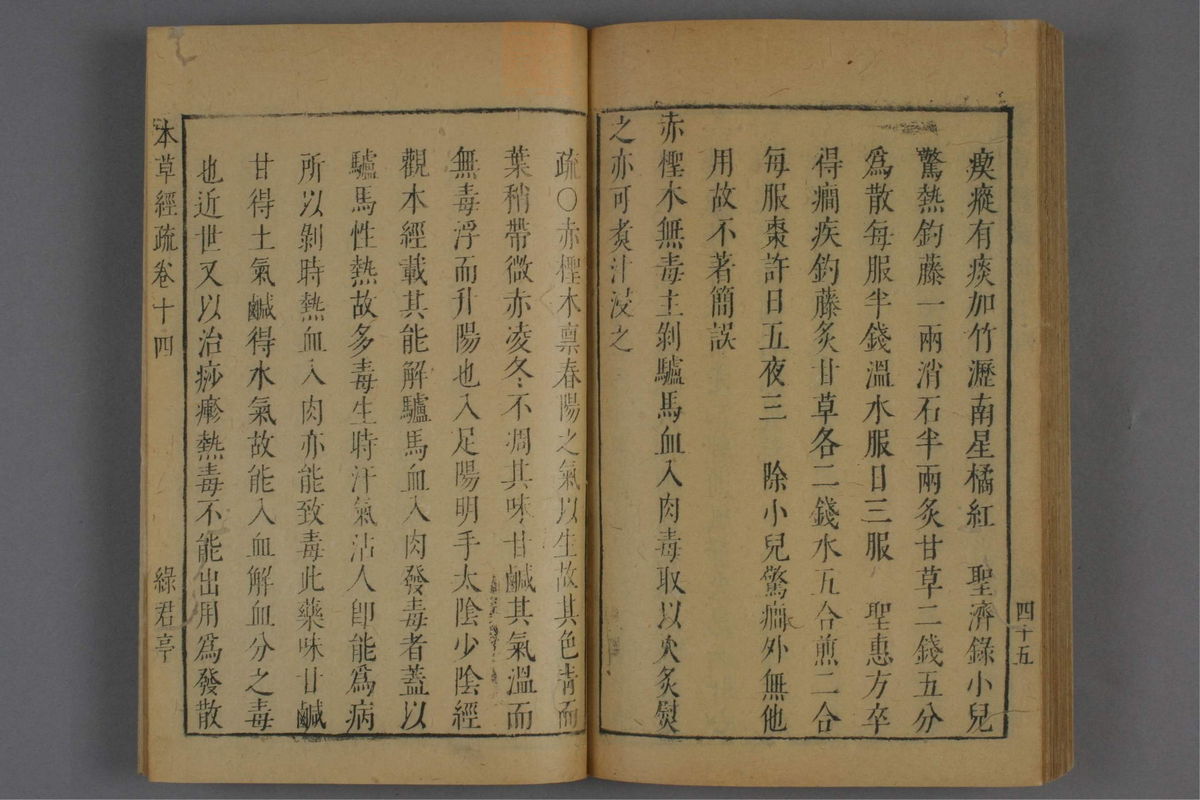 瘈瘲有痰加竹瀝南星橘紅　聖濟錄小兒
驚熱釣藤一兩消石半兩炙甘草二錢五分
爲散每服半錢溫水服日三服　聖惠方卒
得癇疾釣藤炙甘草各二錢水五合煎二合
每服棗許日五夜三　除小兒驚癇外無他
用故不著簡誤
赤檉木無毒主剝驢馬血入肉毒取以火炙熨
之亦可煮汁浸之
四十五
疏〇赤檉木禀春陽之氣以生故其色青而
葉稍帶微赤凌冬不凋其味甘鹹其氣溫而
無毒浮而升陽也入足陽明手太陰少陰經
觀本經載其能解驢馬血入肉發毒者蓋以
驢馬性熱故多毒生時汗氣沾人卽能爲病
所以剝時熱血入肉亦能致毒此藥味甘鹹
甘得土氣鹹得水氣故能入血解血分之毒
也近世又以治痧瘮熱毒不能出用爲發散
本草經疏卷十四
綠君亭